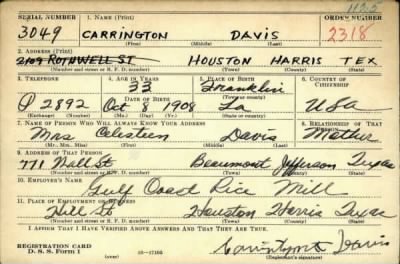 1125
SERIAL NUMBER 1. NAME (Print) ORDER NUMBER
3049 CARRINGTON DAVIS 2318
(First) (Middle) (Last)
2. ADDRESS (Print)
2109 ROTHWELL ST HOUSTON HARRIS TEX
(Number and street or R. F. D. number) (Town) (County) (State)
3. TELEPHONE 4. AGE IN YEARS 5. PLACE OF BIRTH 6. COUNTRY OF CITIZENSHIP
33 Franklin
DATE OF BIRTH (Town or county)
P 2892 Oct 8 1908 La USA
(Exchange) (Number) (Mo.) (Day) (Yr.) (State or country)
7. NAME OF PERSON WHO WILL ALWAYS KNOW YOUR ADDRESS 8. RELATIONSHIP OF THAT PERSON
Mrs Celesten Davis Mother
(Mr., Mrs., Miss) (First) (Middle) (Last)
9. ADDRESS OF THAT PERSON
771 Wall St Beaumont Jefferson Texas
(Number and street or R. F. D. number) (Town) (County) (State)
10. EMPLOYER'S NAME
Gulf Coast Rice Mill
11. PLACE OF EMPLOYMENT OR BUSINESS
Hill St Houston Harris Texas
(Number and street or R. F. D. number) (Town) (County) (State)
I AFFIRM THAT I HAVE VERIFIED ABOVE ANSWERS AND THAT THEY ARE TRUE.
REGISTRATION CARD
D. S. S. Form 1 (over) 16—17105 Carrington Davis
(Registrant's signature)